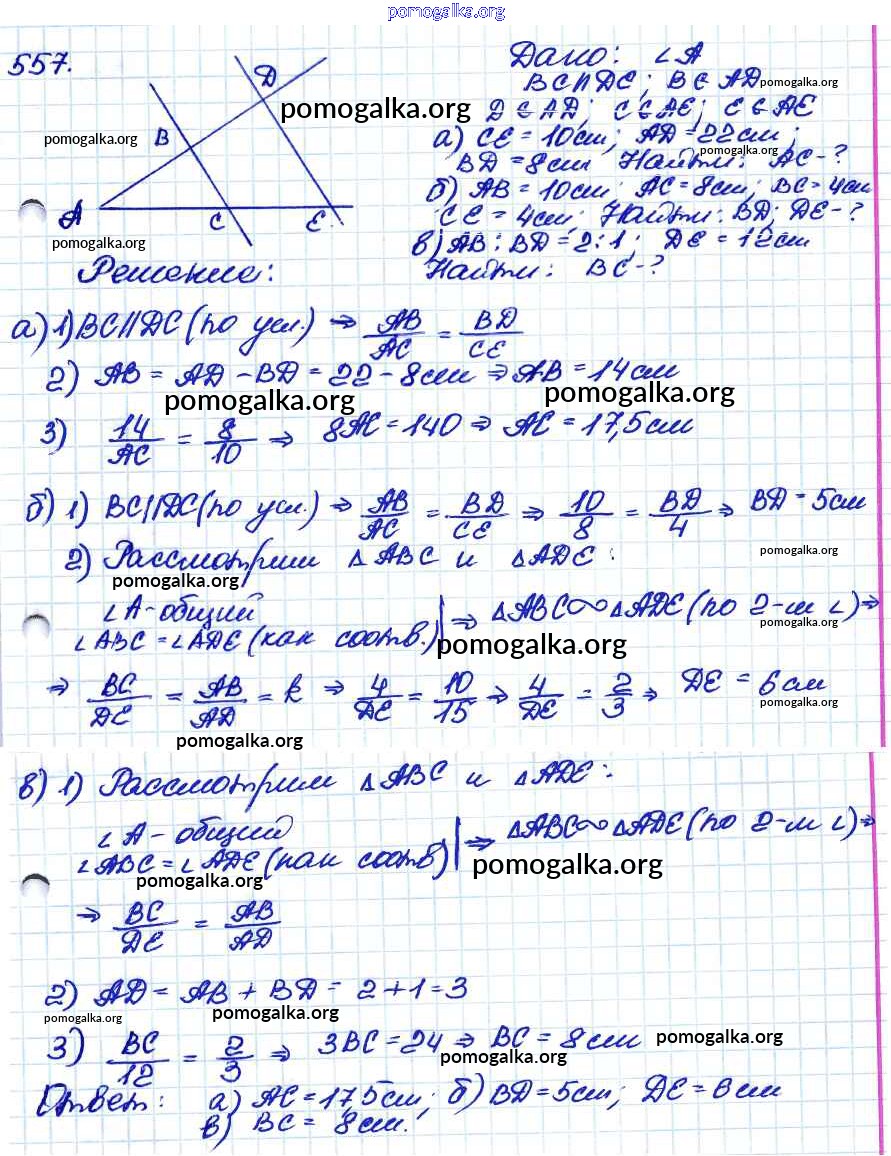 pomogalka.org
557.
Дано: ∠A
BC∥DE; B∈AD pomogalka.org
D∈AD; C∈AE; E∈AE
а) CE = 10см; AD = 22см;
pomogalka.org
BD = 8см Найти: AC - ?
б) AB = 10см; AC = 8см; BC = 4см
CE = 4см; Найти: BD; DE - ?
в) AB : BD = 2:1; DE = 12см
Найти: BC - ?
D
pomogalka.org
pomogalka.org B
A C E
pomogalka.org
Решение:
а) 1) BC∥DC (по усл.) ⇒ AB/AC = BD/CE
2) AB = AD - BD = 22 - 8см ⇒ AB = 14см
pomogalka.org pomogalka.org
3) 14/AC = 8/10 ⇒ 8AC = 140 ⇒ AC = 17,5см
б) 1) BC∥DC (по усл.) ⇒ AB/AC = BD/CE ⇒ 10/8 = BD/4 ⇒ BD = 5см
2) Рассмотрим △ABC и △ADE: pomogalka.org
pomogalka.org
∠A - общий
∠ABC = ∠ADE (как соотв.) | ⇒ △ABC∞△ADE (по 2-м ∠) ⇒
pomogalka.org pomogalka.org
⇒ BC/DE = AB/AD = k ⇒ 4/DE = 10/15 ⇒ 4/DE = 2/3 ⇒ DE = 6см
pomogalka.org pomogalka.org
в) 1) Рассмотрим △ABC и △ADE:
∠A - общий
∠ABC = ∠ADE (как соотв) | ⇒ △ABC∞△ADE (по 2-м ∠) ⇒
pomogalka.org pomogalka.org
⇒ BC/DE = AB/AD
2) AD = AB + BD = 2 + 1 = 3
pomogalka.org pomogalka.org
3) BC/12 = 2/3 ⇒ 3BC = 24 ⇒ BC = 8см pomogalka.org
pomogalka.org
Ответ: а) AC = 17,5см; б) BD = 5см; DE = 6см
в) BC = 8см.